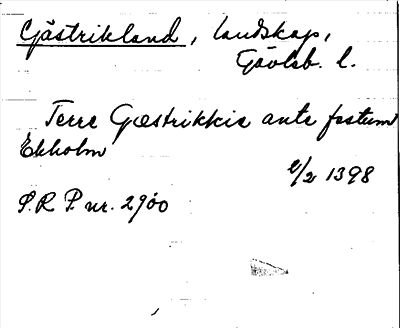 Gästrikland, landskap,
Gävleb. l.
Terre Gæstrikkie ante festum
Ekholm
2/2 1398
S.R.P. nr. 2900